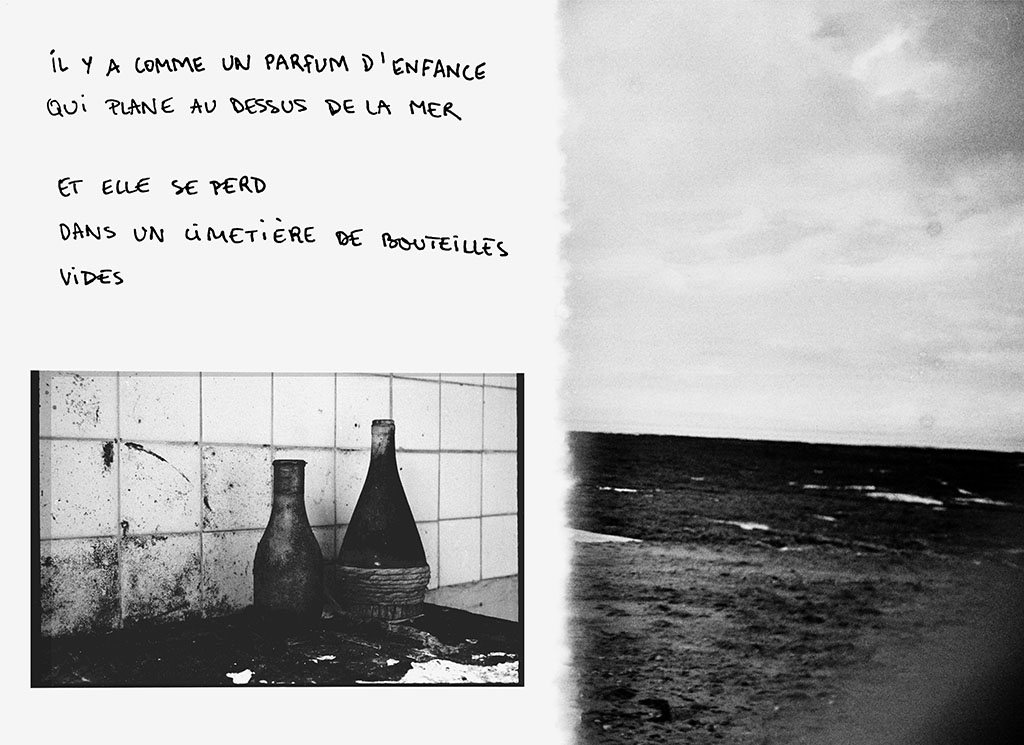 iL Y A COMME UN PARFUM D'ENFANCE
QUi PLANE AU DESSUS DE LA MER
ET ELLE SE PERD
DANS UN CiMETiÈRE DE BOUTEiLLES
ViDES